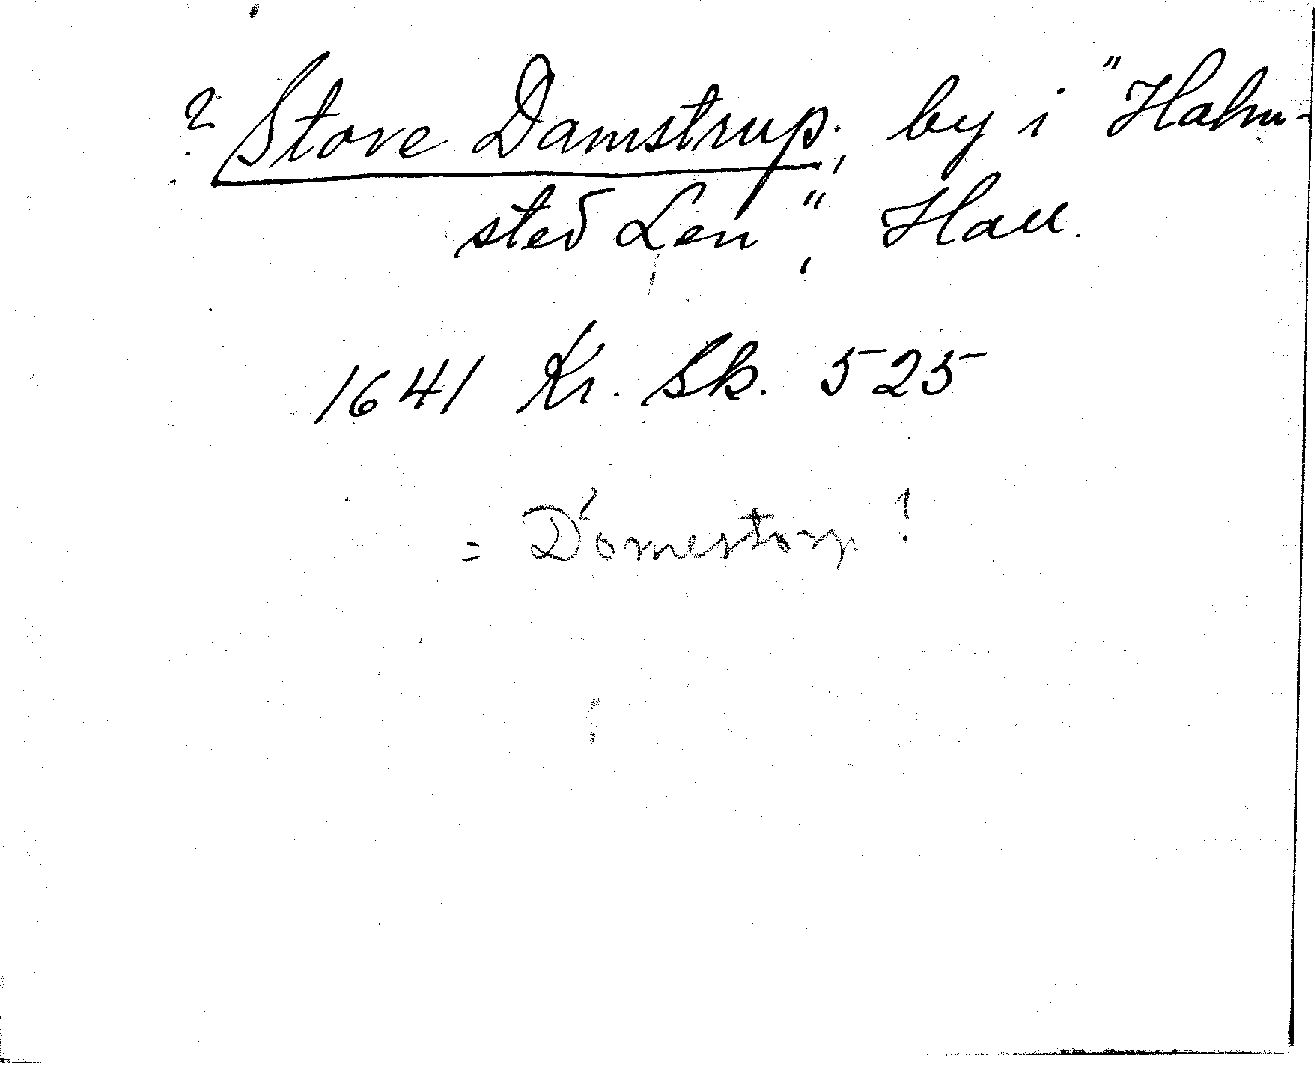 ? Store Damstrup, by i "Halm-
sted Len", Hall.
1641 Kr. Sk. 525
= Dömestorp!